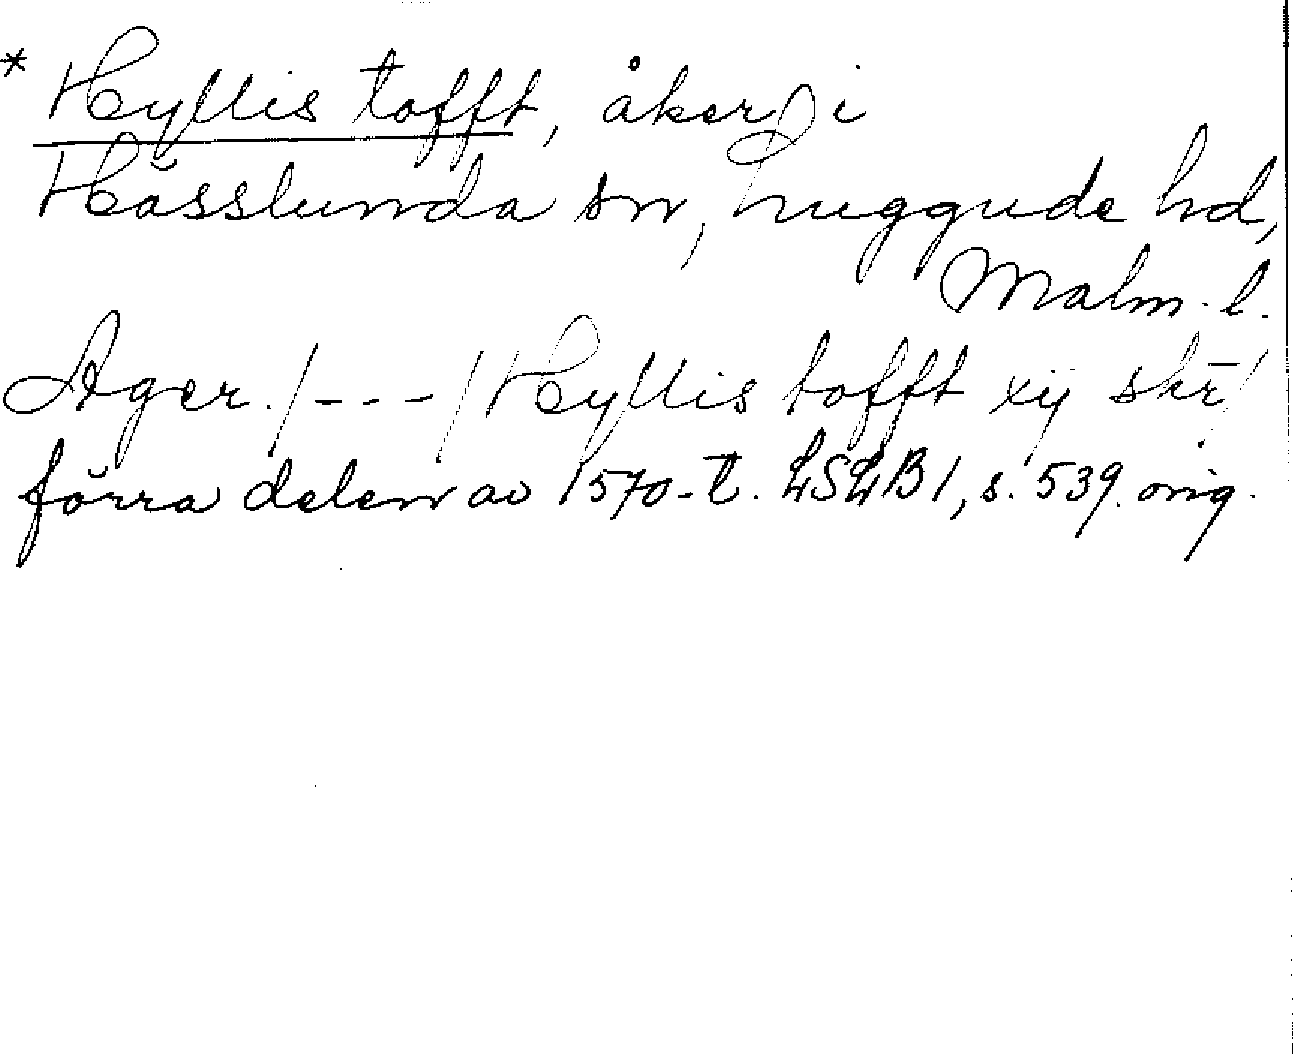 * Hyllis tofft, åker, i
Hässlunda sn, Luggude hd,
Malm. l.
Ager. /---/ Hyllis tofft xij skr̄,
förra delen av 1570-t. LSLB 1, s. 539. orig.